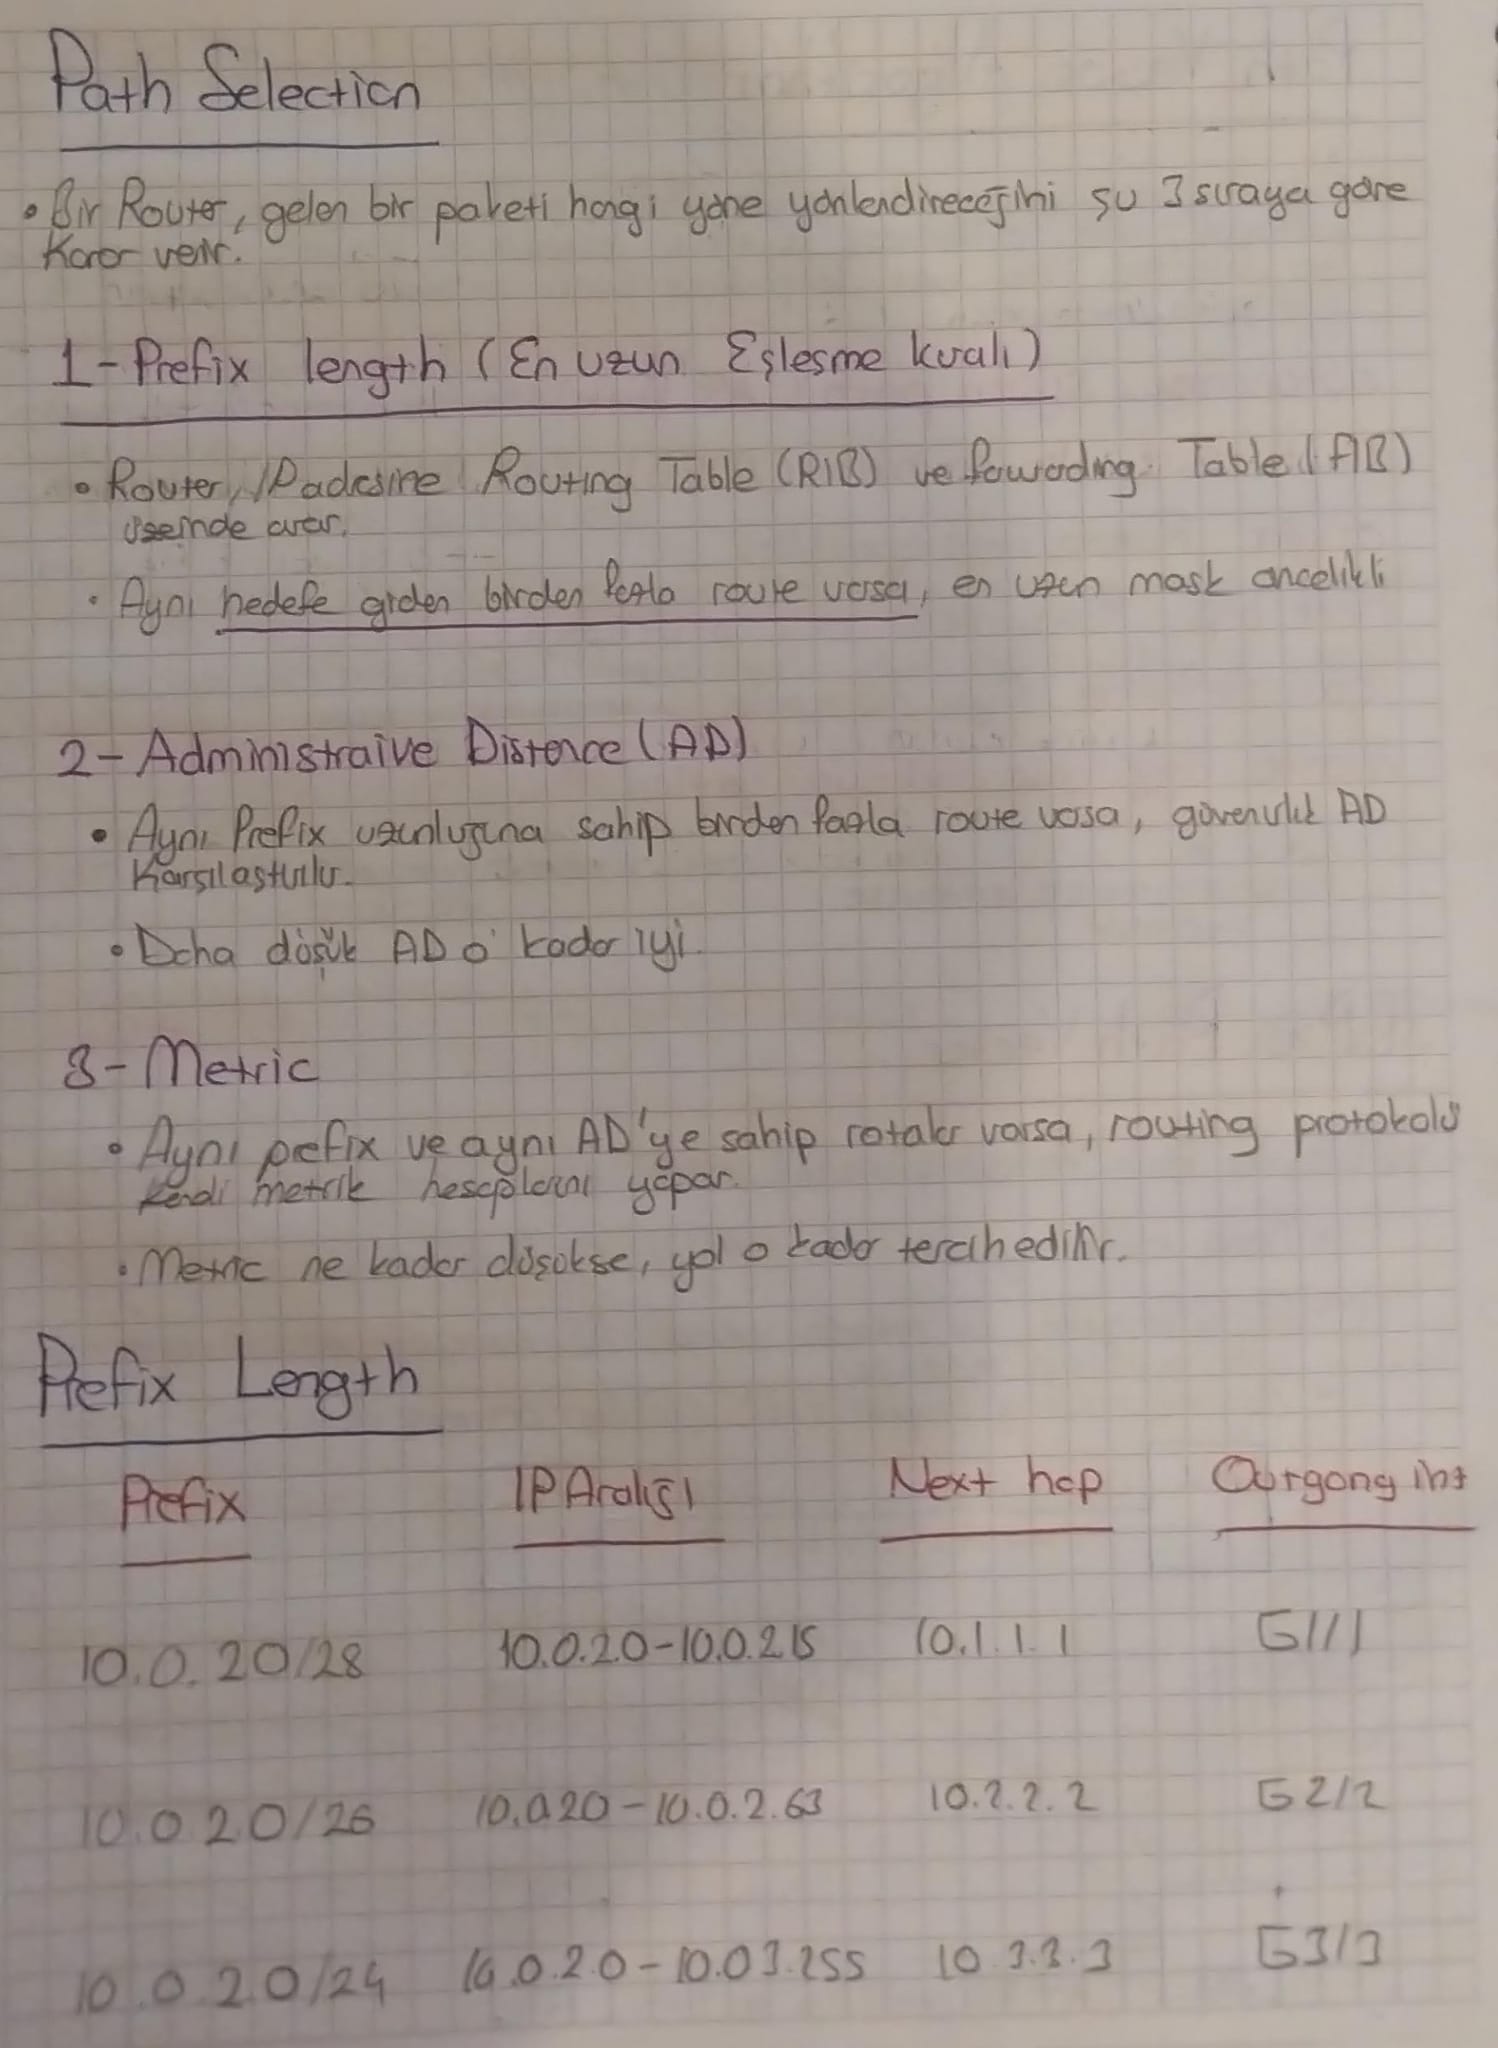 Path Selection
• Bir Router, gelen bir paketi hangi yöne yönlendireceğini şu 3 sıraya göre
Karar verir.
1- Prefix length (En uzun Eşleşme kuralı)
• Router, IP adresine Routing Table (RIB) ve Fowarding Table (FIB)
üzerinde arar.
• Aynı hedefe giden birden fazla route varsa, en uzun mask öncelikli
2- Administraive Distance (AD)
• Aynı Prefix uzunluğuna sahip birden fazla route varsa, güvenirlik AD
Karşılaştırılır.
• Daha düşük AD o kadar iyi.
3- Metric
• Aynı prefix ve aynı AD'ye sahip rotalar varsa, routing protokolü
kendi metrik hesaplarını yapar.
• Metric ne kadar düşükse, yol o kadar tercih edilir.
Prefix Length
Prefix IP Aralığı Next hop Ourgong int
10.0.20/28 10.0.2.0-10.0.215 10.1.1.1 G1/1
10.0 2.0/26 10.0.20-10.0.2.63 10.2.2.2 G2/2
10.0 2.0/24 10.0.2.0-10.03.255 10 3.3.3 G3/3